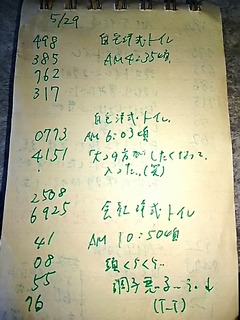 5/29
498 自宅洋式トイレ
385 AM 4:35頃
762
317
自宅洋式トイレ
0773 AM 6:03頃
4151 大の方がしたくなって、
入った。(笑)
2508
6925 会社洋式トイレ
41 AM 10:50頃
08 頭くらくら…
55 調子悪~る~い↓
76 (T_T)